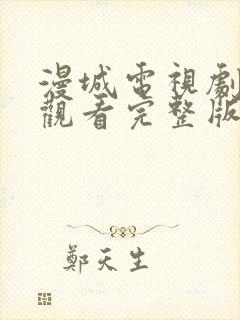 漫城電視劇
觀看完整版
鄭天生